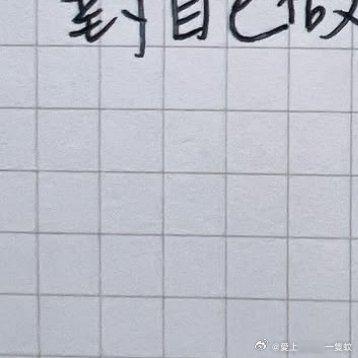 對自己做
@愛上 一隻蚊